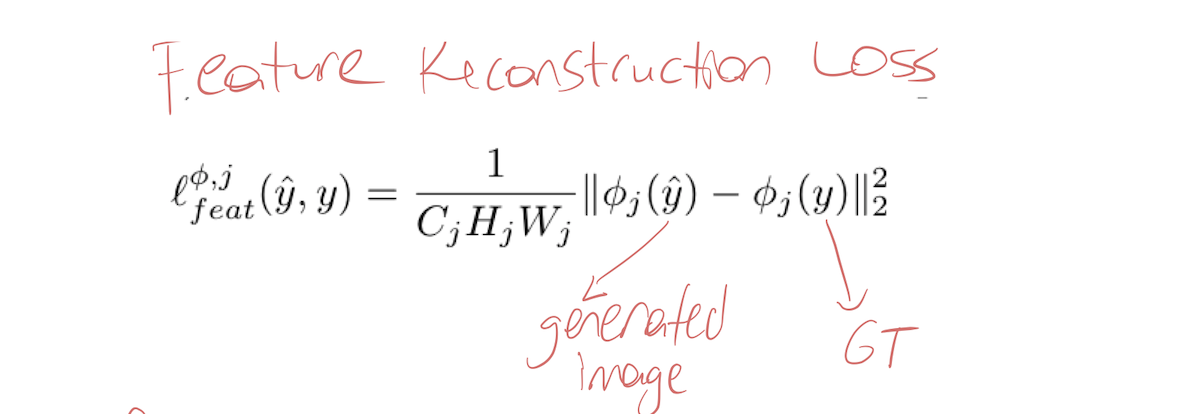 Feature Reconstruction Loss
ℓ^{ϕ,j}_{feat}(ŷ, y) = \frac{1}{C_jH_jW_j}‖ϕ_j(ŷ) − ϕ_j(y)‖^2_2
generated
image
GT